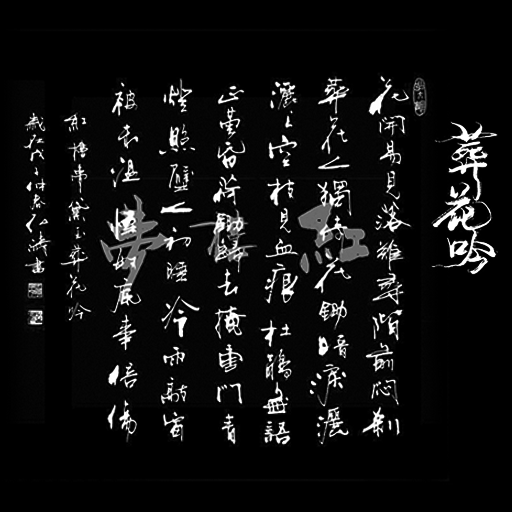 葬花吟
花開易見落難尋階前悶殺
葬花人獨倚花鋤暗淚灑
灑上空枝見血痕杜鵑無語
正黃昏荷鋤歸去掩重門青
燈照壁人初睡冷雨敲窗
被未溫怪奴底事倍傷
紅樓夢黛玉葬花吟
紅楼夢